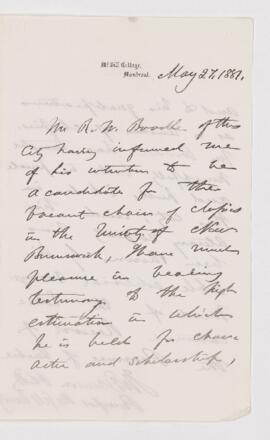 McGill College,
Montreal. May 27, 1881.
Mr R. W. Boodle of this
City having informed me
of his intention to be
a candidate for the
vacant chair of Classics
in the Univty of New
Brunswick, I have much
pleasure in bearing
testimony to the high
estimation in which
he is held for char-
acter and scholarship,